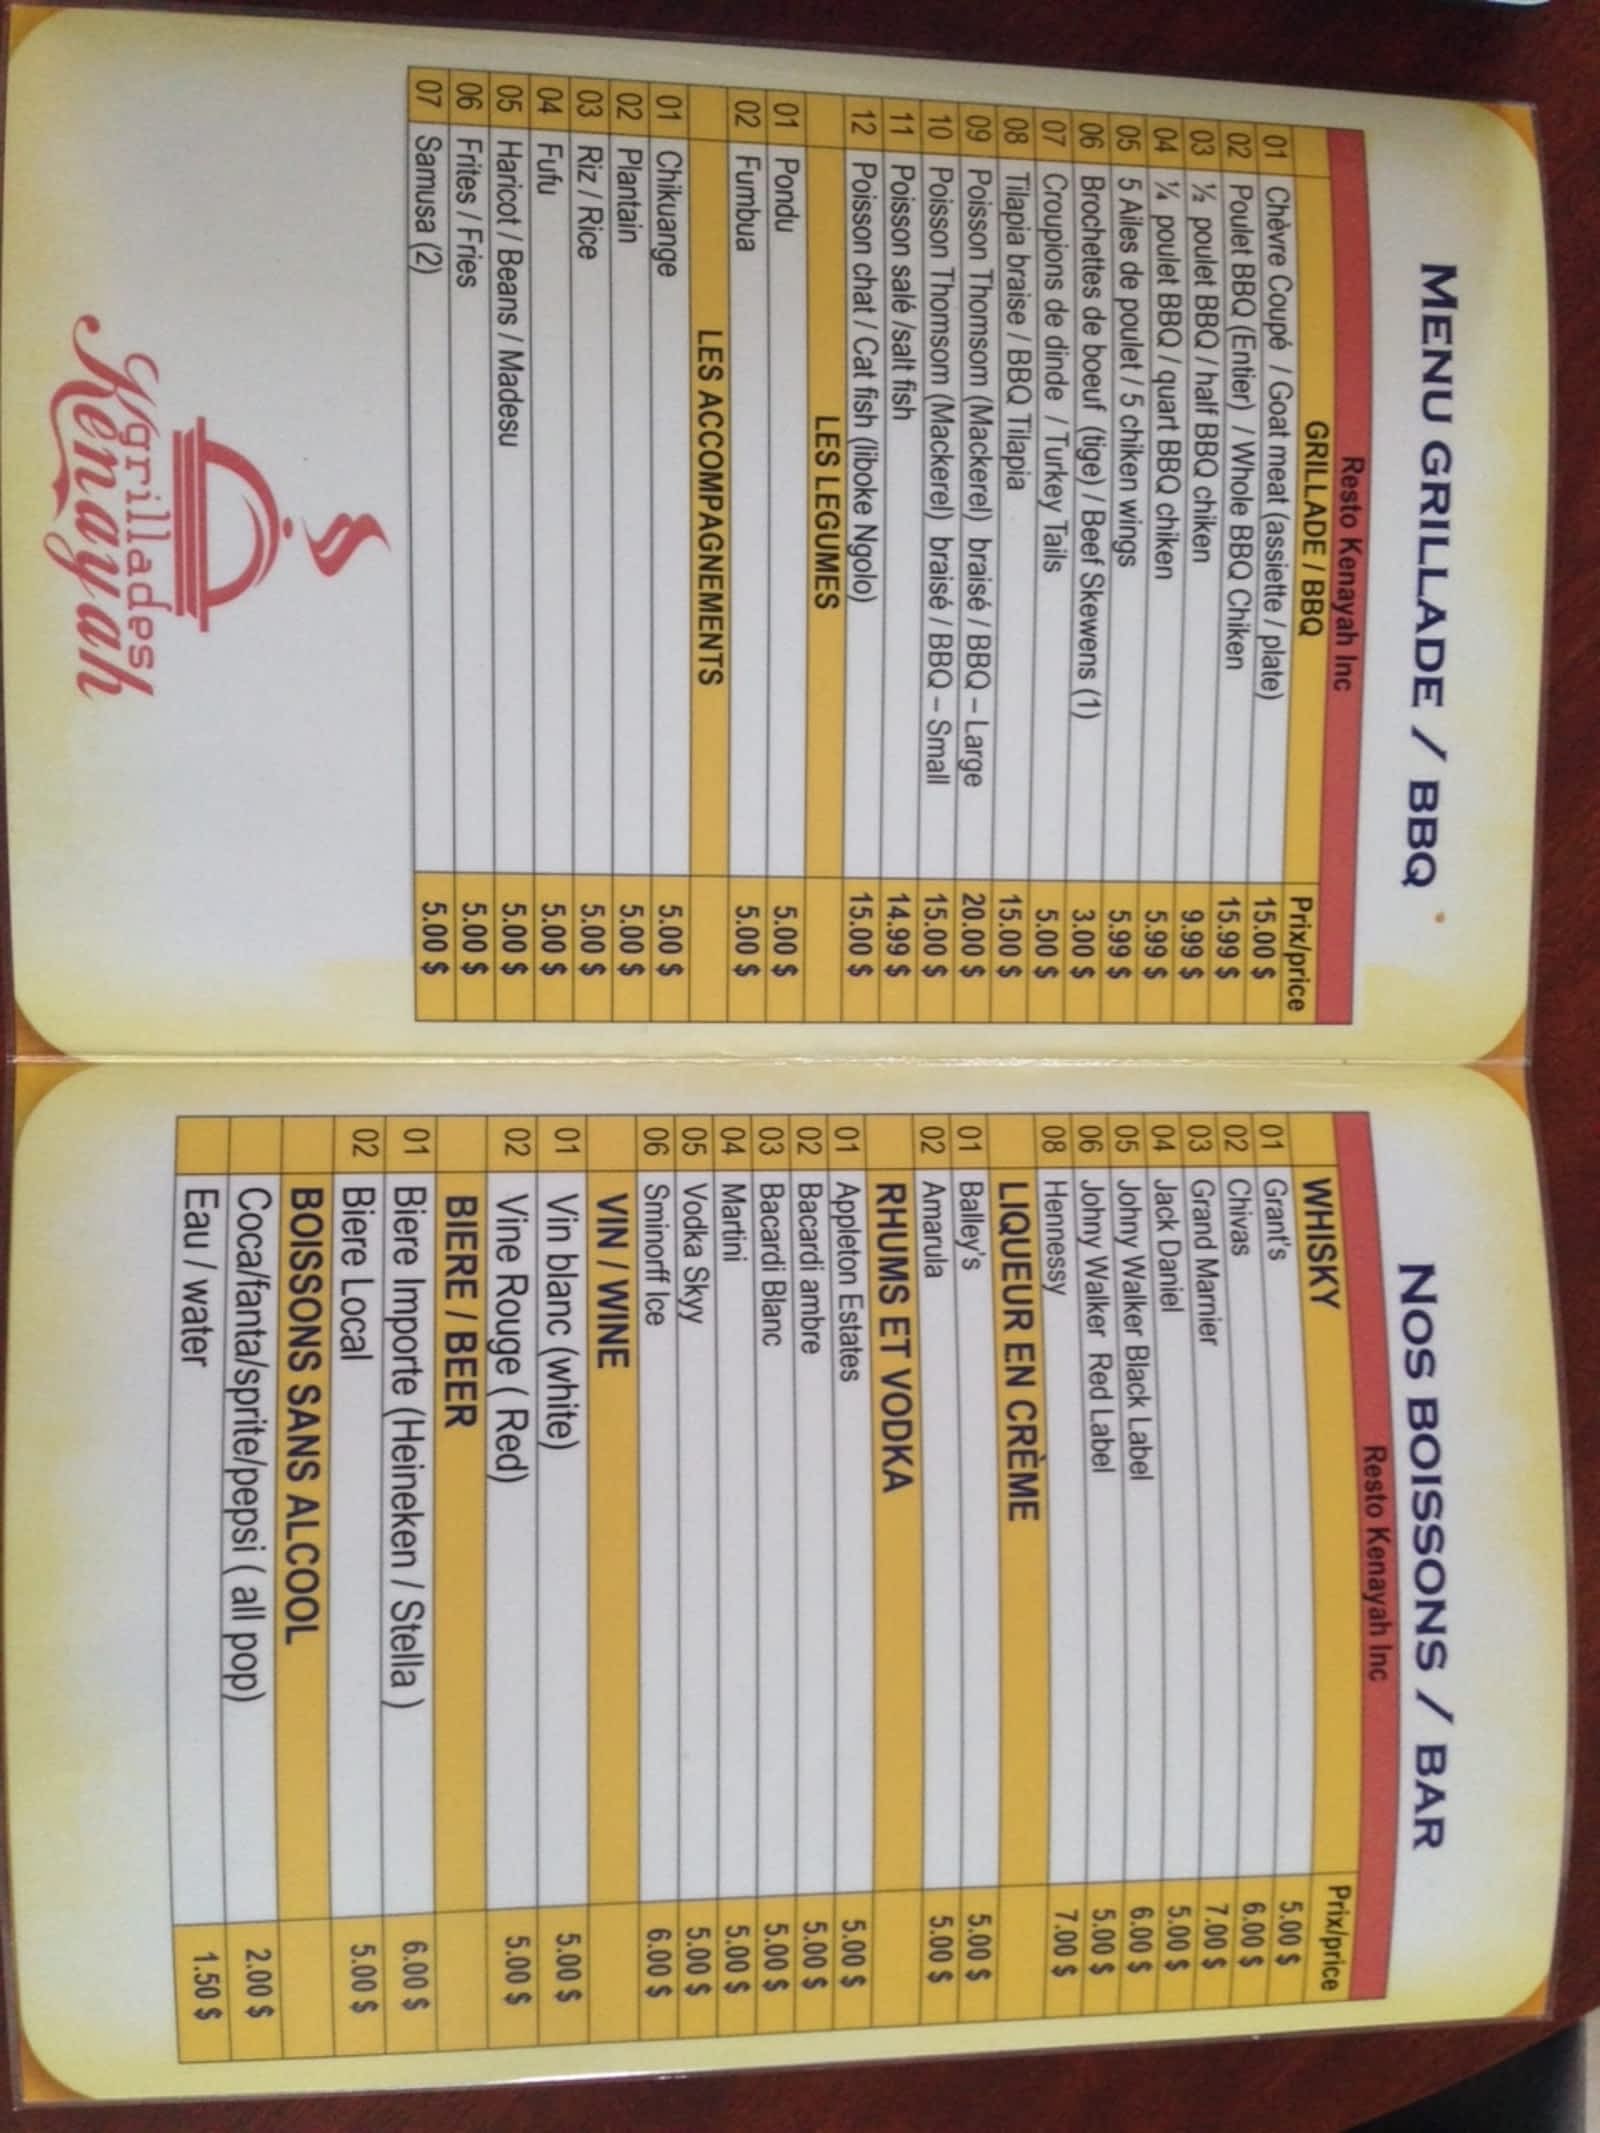 MENU GRILLADE / BBQ
Resto Kenayah Inc
GRILLADE / BBQ Prix/price
01 Chèvre Coupé / Goat meat (assiette / plate) 15.00 $
02 Poulet BBQ (Entier) / Whole BBQ Chiken 15.99 $
03 ½ poulet BBQ / half BBQ chiken 9.99 $
04 ¼ poulet BBQ / quart BBQ chiken 5.99 $
05 5 Ailes de poulet / 5 chiken wings 5.99 $
06 Brochettes de boeuf (tige) / Beef Skewens (1) 3.00 $
07 Croupions de dinde / Turkey Tails 5.00 $
08 Tilapia braise / BBQ Tilapia 15.00 $
09 Poisson Thomsom (Mackerel) braisé / BBQ – Large 20.00 $
10 Poisson Thomsom (Mackerel) braisé / BBQ – Small 15.00 $
11 Poisson salé /salt fish 14.99 $
12 Poisson chat / Cat fish (liboke Ngolo) 15.00 $
LES LEGUMES
01 Pondu 5.00 $
02 Fumbua 5.00 $
LES ACCOMPAGNEMENTS
01 Chikuange 5.00 $
02 Plantain 5.00 $
03 Riz / Rice 5.00 $
04 Fufu 5.00 $
05 Haricot / Beans / Madesu 5.00 $
06 Frites / Fries 5.00 $
07 Samusa (2) 5.00 $
grillades
Kenayah
NOS BOISSONS / BAR
Resto Kenayah Inc
WHISKY Prix/price
01 Grant's 5.00 $
02 Chivas 6.00 $
03 Grand Marnier 7.00 $
04 Jack Daniel 5.00 $
05 Johny Walker Black Label 6.00 $
06 Johny Walker Red Label 5.00 $
08 Hennessy 7.00 $
LIQUEUR EN CRÈME
01 Bailey's 5.00 $
02 Amarula 5.00 $
RHUMS ET VODKA
01 Appleton Estates 5.00 $
02 Bacardi ambre 5.00 $
03 Bacardi Blanc 5.00 $
04 Martini 5.00 $
05 Vodka Skyy 5.00 $
06 Sminorff Ice 6.00 $
VIN / WINE
01 Vin blanc (white) 5.00 $
02 Vine Rouge ( Red) 5.00 $
BIERE / BEER
01 Biere Importe (Heineken / Stella ) 6.00 $
02 Biere Local 5.00 $
BOISSONS SANS ALCOOL
Coca/fanta/sprite/pepsi ( all pop) 2.00 $
Eau / water 1.50 $